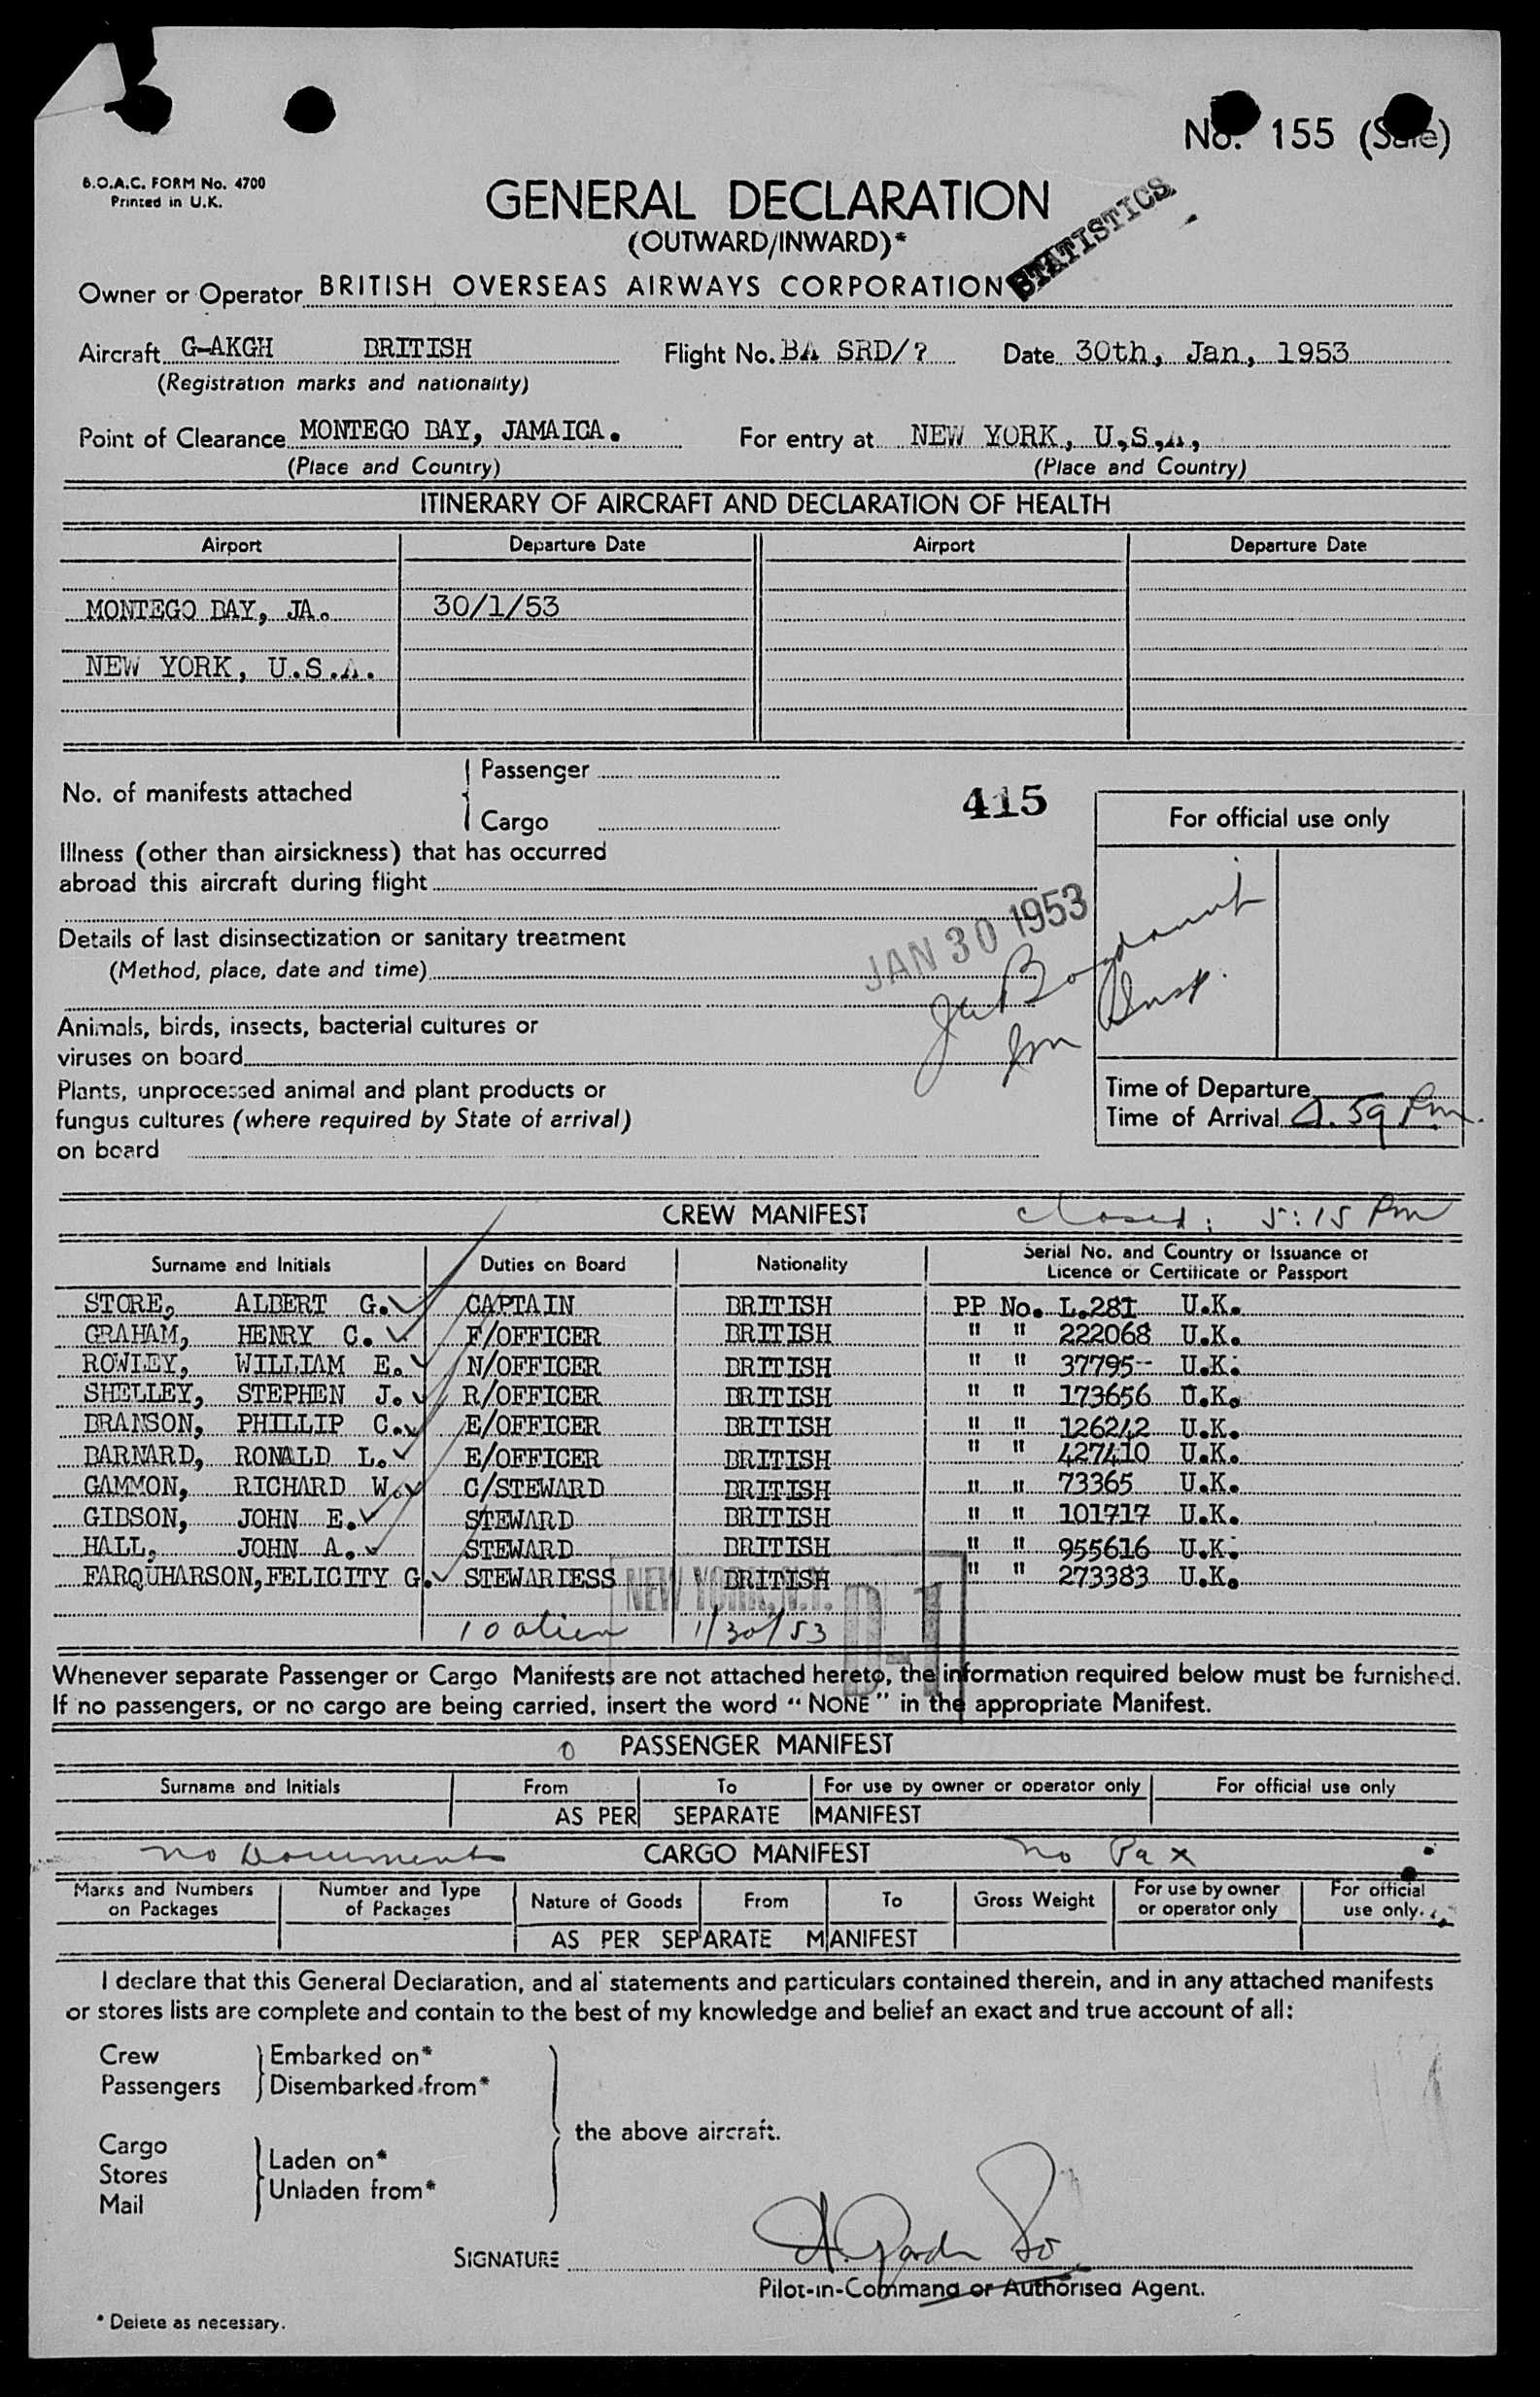 No. 155 (Sale)
B.O.A.C. FORM No. 4700
Printed in U.K.
GENERAL DECLARATION
(OUTWARD/INWARD)*
STATISTICS
Owner or Operator BRITISH OVERSEAS AIRWAYS CORPORATION
Aircraft G-AKGH BRITISH Flight No. BA SRD/? Date 30th, Jan, 1953
(Registration marks and nationality)
Point of Clearance MONTEGO BAY, JAMAICA. For entry at NEW YORK, U.S.A,
(Place and Country) (Place and Country)
ITINERARY OF AIRCRAFT AND DECLARATION OF HEALTH
Airport Departure Date Airport Departure Date
MONTEGO BAY, JA. 30/1/53
NEW YORK, U.S.A.
No. of manifests attached
Passenger
Cargo
415
For official use only
Illness (other than airsickness) that has occurred
abroad this aircraft during flight
JAN 30 1953
Details of last disinsectization or sanitary treatment
(Method, place, date and time)
Insp.
Animals, birds, insects, bacterial cultures or
viruses on board
Plants, unprocessed animal and plant products or
fungus cultures (where required by State of arrival)
on board
Time of Departure
Time of Arrival 4.59 Pm.
CREW MANIFEST closed: 5:15 Pm
Surname and Initials Duties on Board Nationality Serial No. and Country of Issuance of
Licence or Certificate or Passport
STORE, ALBERT G. CAPTAIN BRITISH PP No. L.281 U.K.
GRAHAM, HENRY C. F/OFFICER BRITISH " " 222068 U.K.
ROWLEY, WILLIAM E. N/OFFICER BRITISH " " 37795-- U.K.
SHELLEY, STEPHEN J. R/OFFICER BRITISH " " 173656 U.K.
BRANSON, PHILLIP C. E/OFFICER BRITISH " " 126242 U.K.
BARNARD, RONALD L. E/OFFICER BRITISH " " 427410 U.K.
GAMMON, RICHARD W. C/STEWARD BRITISH " " 73365 U.K.
GIBSON, JOHN E. STEWARD BRITISH " " 101717 U.K.
HALL, JOHN A. STEWARD BRITISH " " 955616 U.K.
FARQUHARSON, FELICITY G. STEWARDESS BRITISH " " 273383 U.K.
NEW YORK, N.Y.
D-1
10 alien 1/30/53
Whenever separate Passenger or Cargo Manifests are not attached hereto, the information required below must be furnished.
If no passengers, or no cargo are being carried, insert the word "NONE" in the appropriate Manifest.
0 PASSENGER MANIFEST
Surname and Initials From To For use by owner or operator only For official use only
AS PER SEPARATE MANIFEST
no Documents CARGO MANIFEST no Pax
Marks and Numbers on Packages Number and Type of Packages Nature of Goods From To Gross Weight For use by owner or operator only For official use only.
AS PER SEPARATE MANIFEST
I declare that this General Declaration, and al statements and particulars contained therein, and in any attached manifests
or stores lists are complete and contain to the best of my knowledge and belief an exact and true account of all:
Crew Embarked on*
Passengers Disembarked from*
the above aircraft.
Cargo
Stores
Mail
Laden on*
Unladen from*
SIGNATURE
Pilot-in-Command or Authorised Agent.
* Delete as necessary.